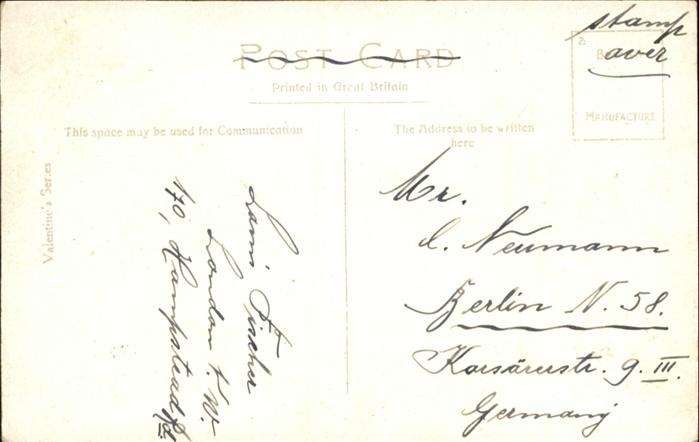 POST CARD
Printed in Great Britain
stamp
over
MANUFACTURE
This space may be used for Communication
The Address to be written
here
Valentine's Series
Fischer
London N.W.
170, Hampstead Rd
Mr.
C. Neumann
Berlin N. 58.
9. III.
Germany